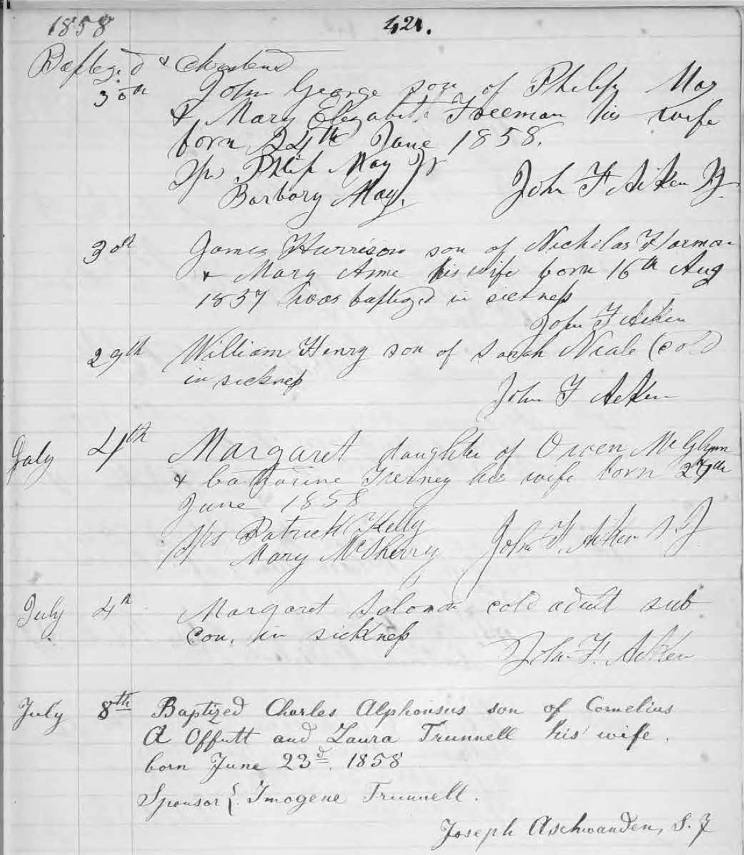 1858 421.
Baptized &
30th John George son of Philip May
& Mary Elizabeth Freeman his wife
born 24th June 1858.
Sps Philip May Jr
Barbary May John F Aiken SJ
30th James Harrison son of Nicholas Harman
& Mary Anne his wife born 16th Aug
1857 was baptized in sickness
John F Aiken
29th William Henry son of Sarah Neale (cold
in sickness
John F Aiken
July 4th Margaret daughter of Owen McGlynn
& Catharine Tierney his wife born 29th
June 1858
Sps Patrick Kelly
Mary McSherry John F. Aiken S J
July 4th Margaret cold adult sub
con. in sickness
John F. Aiken
July 8th Baptized Charles Alphonsus son of Cornelius
A Offutt and Laura Trunnell his wife.
born June 23d. 1858
Sponsor { Imogene Trunnell.
Joseph Aschwanden, S.J